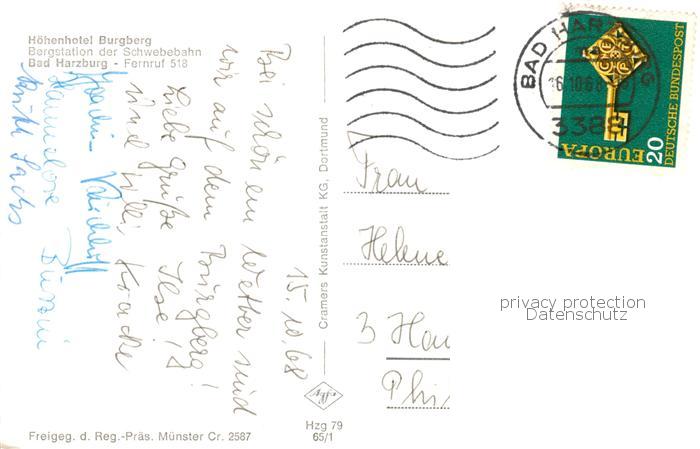 Höhenhotel Burgberg
Bergstation der Schwebebahn
Bad Harzburg - Fernruf 518
15.10.68
Bei schönem Wetter sind
wir auf dem Burgberg!
Liebe Grüße Ilse!
sind
Hannelore
Ruth Sachs
Freigeg. d. Reg.-Präs. Münster Cr. 2587
Cramers Kunstanstalt KG, Dortmund
Hzg 79
65/1
BAD HARZBURG
16.10.68
3388
EUROPA 20
DEUTSCHE BUNDESPOST
Frau
Helene
3 Han
privacy protection
Datenschutz